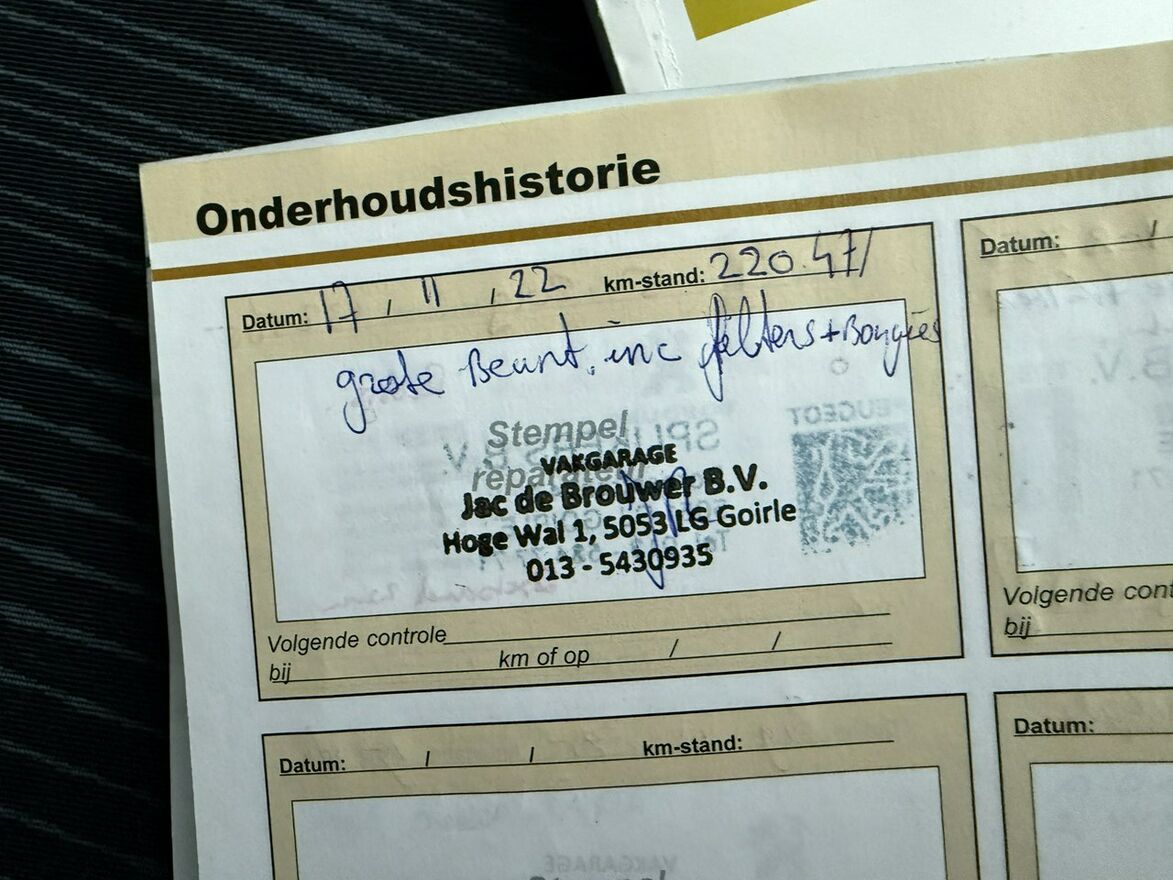 Onderhoudshistorie
Datum: 17 / 11 / 22 km-stand: 220.471
grote Beurt. inc filters + Bougies
Stempel
reparateur
VAKGARAGE
Jac de Brouwer B.V.
Hoge Wal 1, 5053 LG Goirle
013 - 5430935
PEUGEOT
Volgende controle
bij km of op / /
Datum: /
Volgende cont
bij
Datum: / / km-stand:
VAKGARAGE
Stempel
Datum: